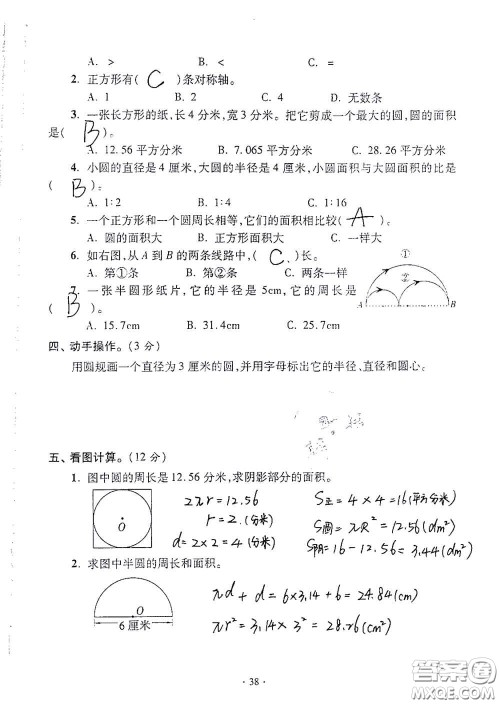 A. >    B. <    C. =
2. 正方形有( C )条对称轴。
A. 1    B. 2    C. 4    D. 无数条
3. 一张长方形的纸,长4分米,宽3分米。把它剪成一个最大的圆,圆的面积
是( B )。
A. 12.56平方分米    B. 7.065平方分米    C. 28.26平方分米
4. 小圆的直径是4厘米,大圆的半径是4厘米,小圆面积与大圆面积的比是
( B )。
A. 1∶2    B. 1∶4    C. 1∶16
5. 一个正方形和一个圆周长相等,它们的面积相比较( A )
A. 圆的面积大    B. 正方形面积大    C. 一样大
6. 如右图,从A到B的两条线路中,( C )长。
A. 第①条    B. 第②条    C. 两条一样
①
②
A    B
7. 一张半圆形纸片,它的半径是5cm,它的周长是
( B )。
A. 15.7cm    B. 31.4cm    C. 25.7cm
四、动手操作。(3分)
用圆规画一个直径为3厘米的圆,并用字母标出它的半径、直径和圆心。
五、看图计算。(12分)
1. 图中圆的周长是12.56分米,求阴影部分的面积。
O
2πr=12.56
r=2.(分米)
d=2×2=4(分米)
S正=4×4=16(平方分米)
S圆=πR²=12.56(dm²)
S阴=16-12.56=3.44(dm²)
2. 求图中半圆的周长和面积。
O
6厘米
πd+d=6×3.14+6=24.84(cm)
πr²=3.14×3²=28.26(cm²)
· 38 ·
答案圈
MXQE.COM